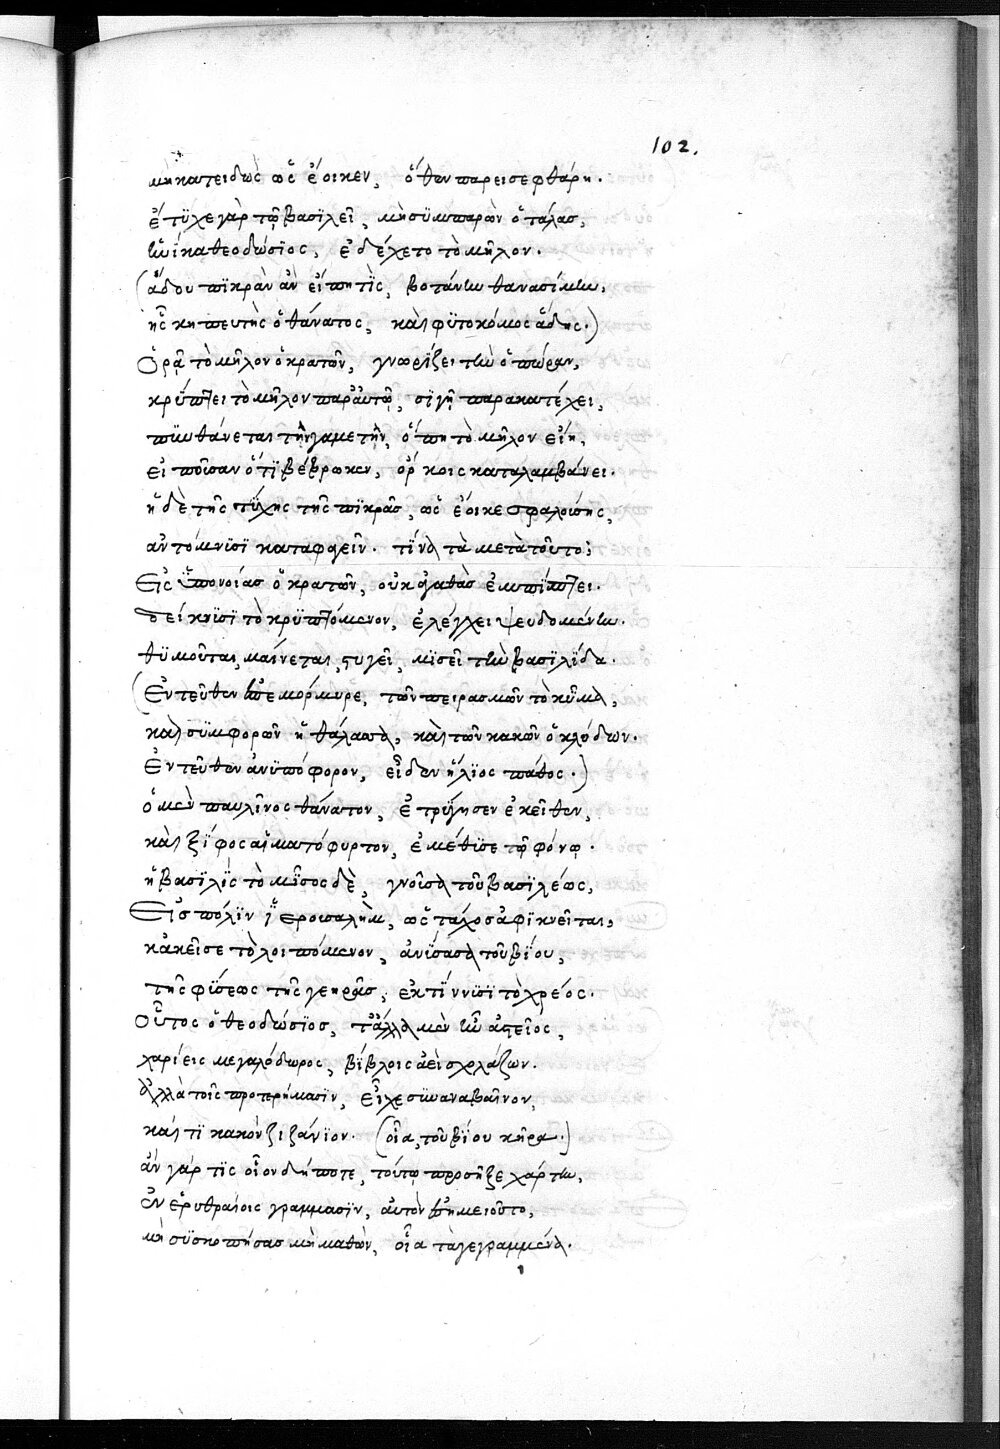 102.
μὴ κατειδὼς ὡς ἔοικεν, ὅθεν παρεισεφθάρη.
ἔτϋχε γὰρ τῷ βασϊλεῖ, μὴ σϋμπαρὼν ὁ τάλας,
ἡνίκα θεοδώσϊος, ἐδέχετο τὸ μῆλον.
(ἅδου πϊκρὰν ἂν εἴπῃ τὶς, βοτάνην θανασίμην,
ἧς κηπευτὴς ὁ θάνατος, καὶ φϋτοκόμος ἅδης.)
Ὁρᾷ τὸ μῆλον ὁ κρατῶν, γνωρίζει τὴν ὀπώραν,
κρύπτει τὸ μῆλον παρ' αὐτῷ, σϊγῇ παρακατέχει,
πϋνθάνεται τὴν γαμετὴν, ὅπη τὸ μῆλον εἴη,
εἰποῦσαν ὅτϊ βέβρωκεν, ὅρκοις καταλαμβάνει.
ἡ δὲ τῆς τύχης τῆς πϊκρᾶς, ὡς ἔοικε σφαλούσης,
αὐτὸ ὄμνϋσϊ καταφαγεῖν. τίνα τὰ μετὰ τοῦτο;
Εἰς ὑπονοίας ὁ κρατῶν, οὐκ ἀγαθὰς ἐμπίπτει.
δείκνϋσϊ τὸ κρϋπτόμενον, ἐλέγχει ψευδομένην.
θϋμοῦται, μαίνεται, στυγεῖ, μϊσεῖ τὴν βασϊλίδα.
(Ἐντεῦθεν ἐμορμυρε, τῶν πειρασμῶν τὸ κῦμα,
καὶ σϋμφορῶν ἡ θάλασσα, καὶ τῶν κακῶν ὁ κλύδων.
Ἐντεῦθεν ἀνϋπόφορον, εἶδεν ἥλϊος πάθος.)
ὁ μὲν παυλῖνος θάνατον, ἐτρύγησεν ἐκεῖθεν,
καὶ ξίφος αἱματόφυρτον, ἐμέθϋσε τῷ φόνῳ.
ἡ βασϊλὶς τὸ μῖσος δὲ, γνοῦσα τοῦ βασϊλέως,
Εἰς πόλϊν ἱερουσαλὴμ, ὡς τάχος ἀφϊκνεῖται,
κἀκεῖσε τὸ λοιπόμενον, ἀνύσασα τοῦ βίου,
τῆς φύσεως τῆς γεηρᾶς, ἐκτίννϋσϊ τὸ χρέος.
Οὗτος ὁ θεοδώσϊος, τἄλλα μὲν ἦν ἀστεῖος,
χαρίεις μεγαλόδωρος, βίβλοις ἀεὶ σχολάζων.
ἀλλὰ τοῖς προτερήμασϊν, εἶχε σϋναναβαῖνον,
καί τϊ κακὸν ζιζάνϊον. (οἷα, τοῦ βίου κῆρα.)
ἂν γάρ τϊς οἷον δήποτε, τούτῳ προσῆξε χάρτην,
ἐν ἐρυθραίοις γράμμασϊν, αὐτὸν σημειοῦτο,
μὴ σϋσκοπήσας μὴ μαθὼν, οἷα τὰ γεγραμμένα.